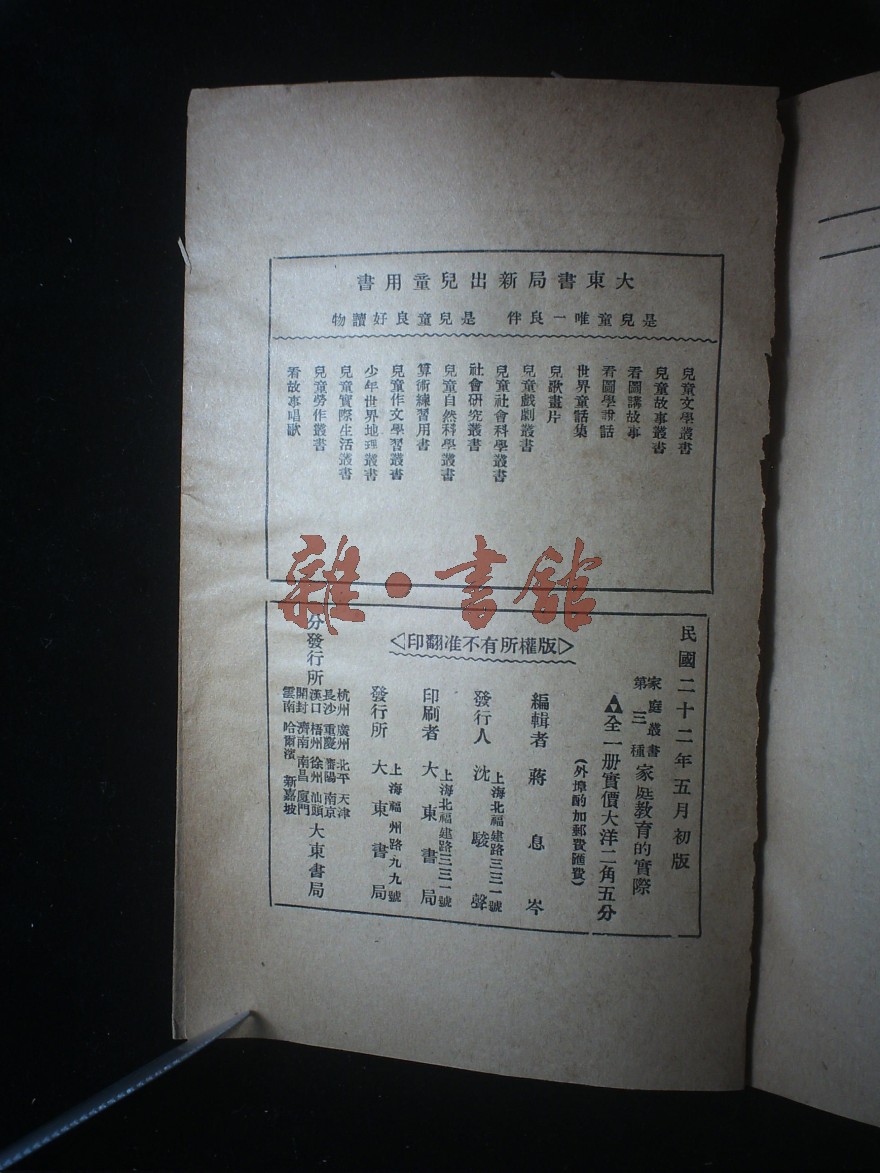 大東書局新出兒童用書
是兒童唯一良伴　是兒童良好讀物
兒童文學叢書
兒童故事叢書
看圖講故事
看圖學說話
世界童話集
兒歌畫片
兒童戲劇叢書
兒童社會科學叢書
社會研究叢書
兒童自然科學叢書
算術練習用書
兒童作文學習叢書
少年世界地理叢書
兒童實際生活叢書
兒童勞作叢書
看故事唱歌
雜·書館
民國二十二年五月初版
家庭叢書
第三種
家庭教育的實際
全一册實價大洋二角五分
(外埠酌加郵費匯費)
版權所有不准翻印
編輯者 蔣息岑
發行人 沈駿聲
上海北福建路三三一號
印刷者 大東書局
上海北福建路三三一號
發行所 大東書局
上海福州路九九號
分發行所
杭州 廣州 北平 天津
長沙 重慶 瀋陽 南京
漢口 梧州 徐州 汕頭
開封 濟南 南昌 廈門
雲南 哈爾濱 新嘉坡
大東書局